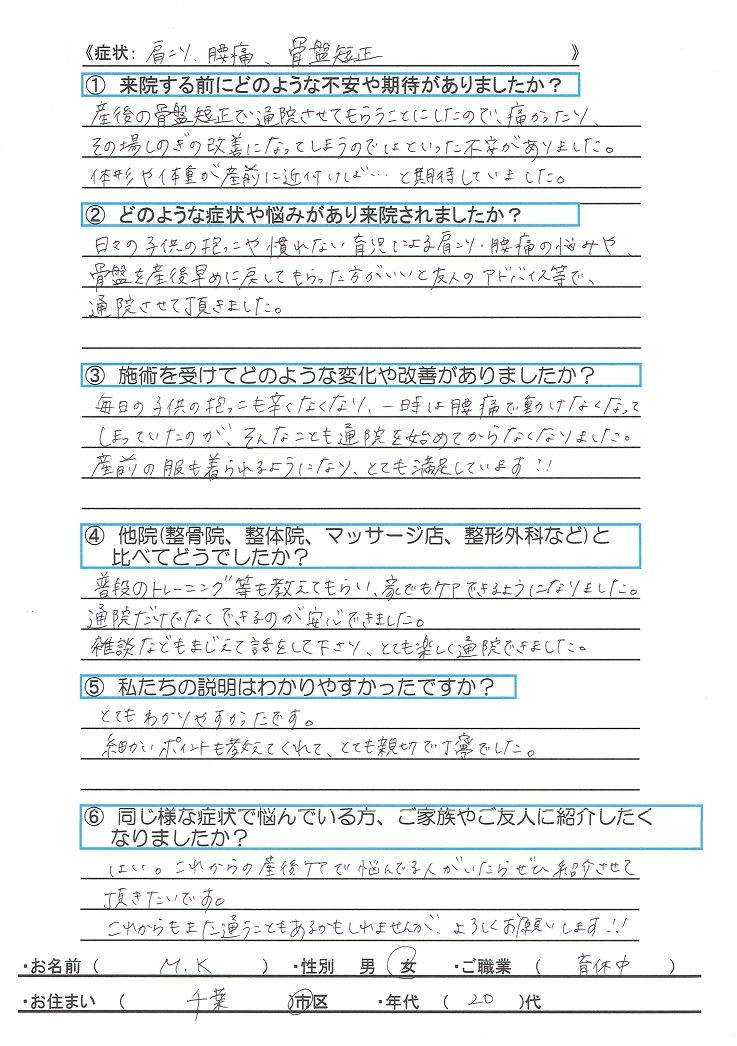 《症状: 肩こり、腰痛、骨盤短正 》
① 来院する前にどのような不安や期待がありましたか？
産後の骨盤短正で通院させてもらうことにしたので、痛かったり、
その場しのぎの改善になってしまうのではといった不安がありました。
体形や体重が産前に近付けば… と期待していました。
② どのような症状や悩みがあり来院されましたか？
日々の子供の抱っこや慣れない育児による肩こり・腰痛の悩みや、
骨盤を産後早めに戻してもらった方がいいと友人のアドバイス等で、
通院させて頂きました。
③ 施術を受けてどのような変化や改善がありましたか？
毎日の子供の抱っこも辛くなくなり、一時は腰痛で動けなくなって
しまっていたのが、そんなことも通院を始めてからなくなりました。
産前の服も着られるようになり、とても満足しています!!
④ 他院(整骨院、整体院、マッサージ店、整形外科など)と
比べてどうでしたか？
普段のトレーニング等も教えてもらい、家でもケアできるようになりました。
通院だけでなくできるのが安心できました。
雑談などもまじえて話をして下さり、とても楽しく通院できました。
⑤ 私たちの説明はわかりやすかったですか？
とてもわかりやすかったです。
細かいポイントも教えてくれて、とても親切で丁寧でした。
⑥ 同じ様な症状で悩んでいる方、ご家族やご友人に紹介したく
なりましたか？
はい。これからの産後ケアで悩んでる人がいたらぜひ紹介させて
頂きたいです。
これからもまた通うこともあるかもしれませんが、よろしくお願いします!!
・お名前 ( M.K ) ・性別 男 女 ・ご職業 ( 育休中 )
・お住まい ( 千葉 )市区 ・年代 ( 20 )代